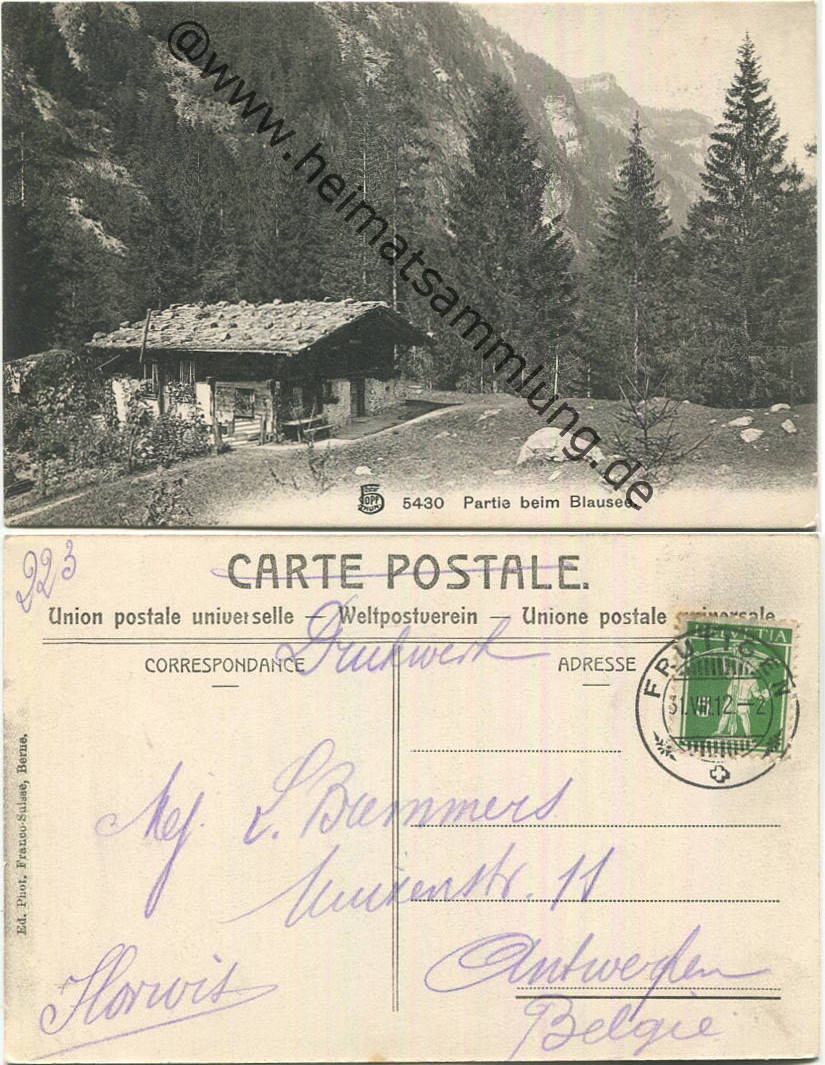 @www.heimatsammlung.de
5430 Partie beim Blausee.
223
CARTE POSTALE.
Union postale universelle – Weltpostverein – Unione postale universale
Drukwerk
CORRESPONDANCE
ADRESSE
HELVETIA
FRUTIGEN
31.VIII.12.–2
Ed. Phot. Franco-Suisse, Berne.
Mej. L. Baemmers
11
Antwerpen
Belgie